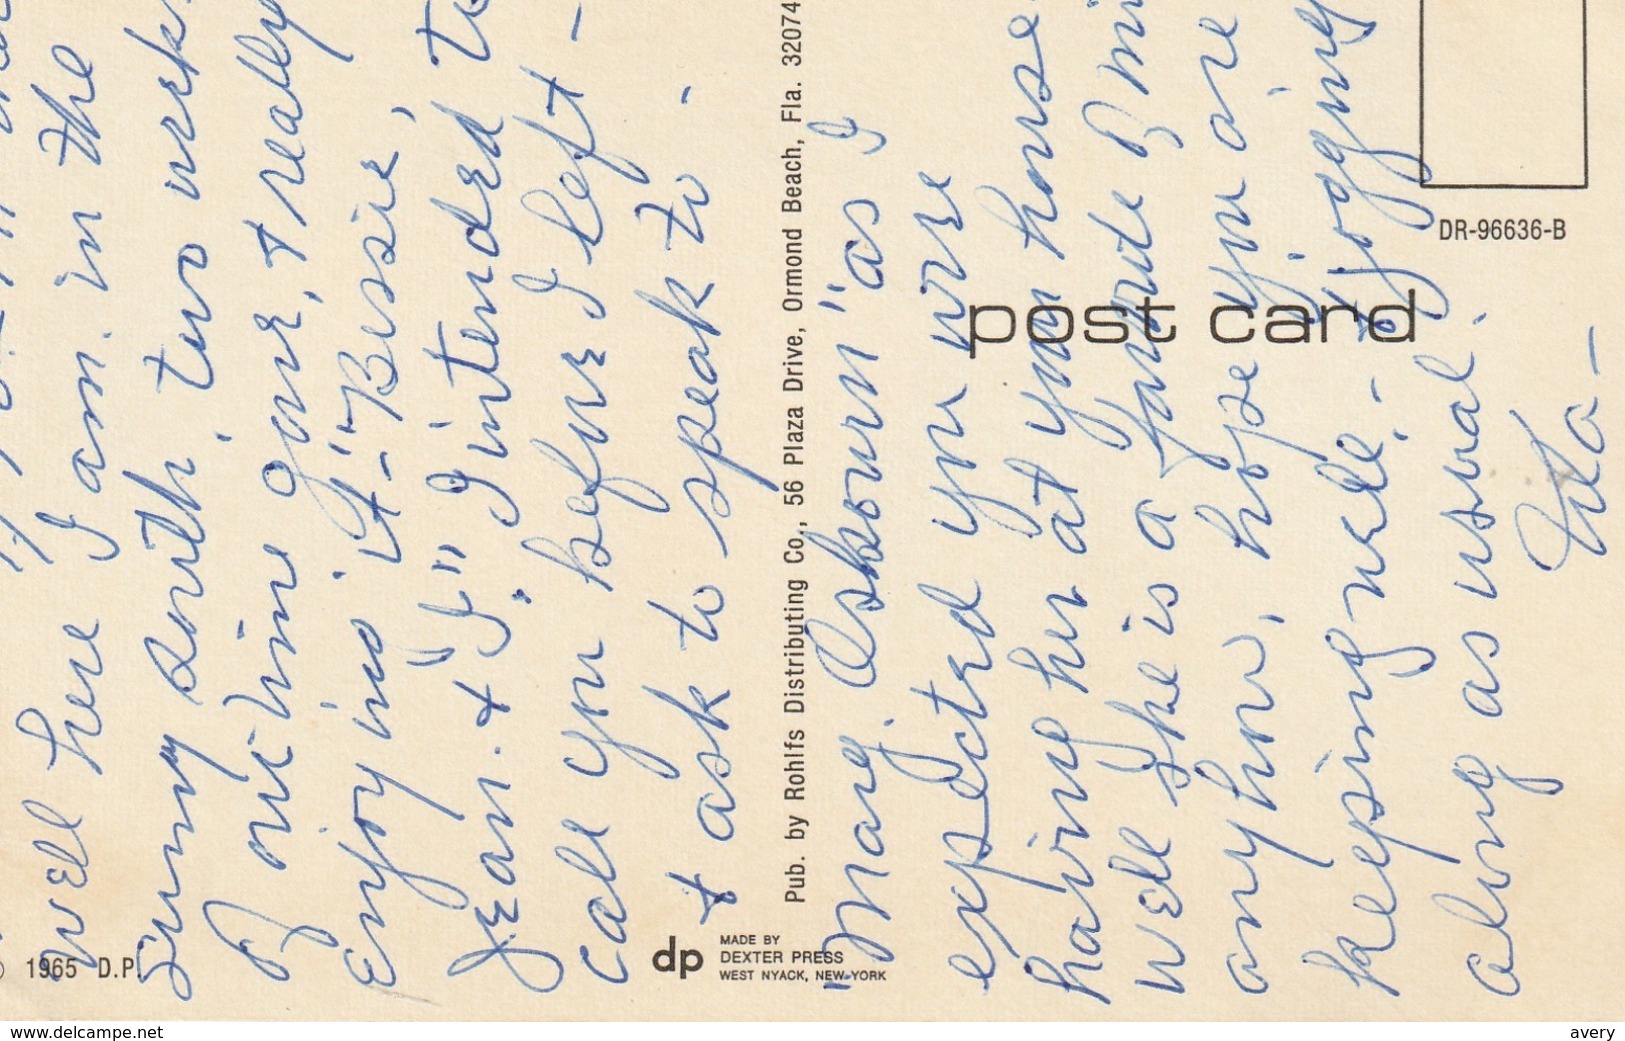 well here I am. in the
Sunny South. two weeks
of our time gone, & really
enjoying it - "Bessie,
Jean. & "I" Intended to
call you before I left -
& ask to speak to -
"Marg. Osbourn" as I
expected you were
having her at your house.
well she is a
anyhow, hope you are
keeping well. - & jogging
along as usual.
Ita -
Pub. by Rohlfs Distributing Co., 56 Plaza Drive, Ormond Beach, Fla. 32074
post card
DR-96636-B
1965 D.P.
dp
MADE BY
DEXTER PRESS
WEST NYACK, NEW YORK
www.delcampe.net
avery